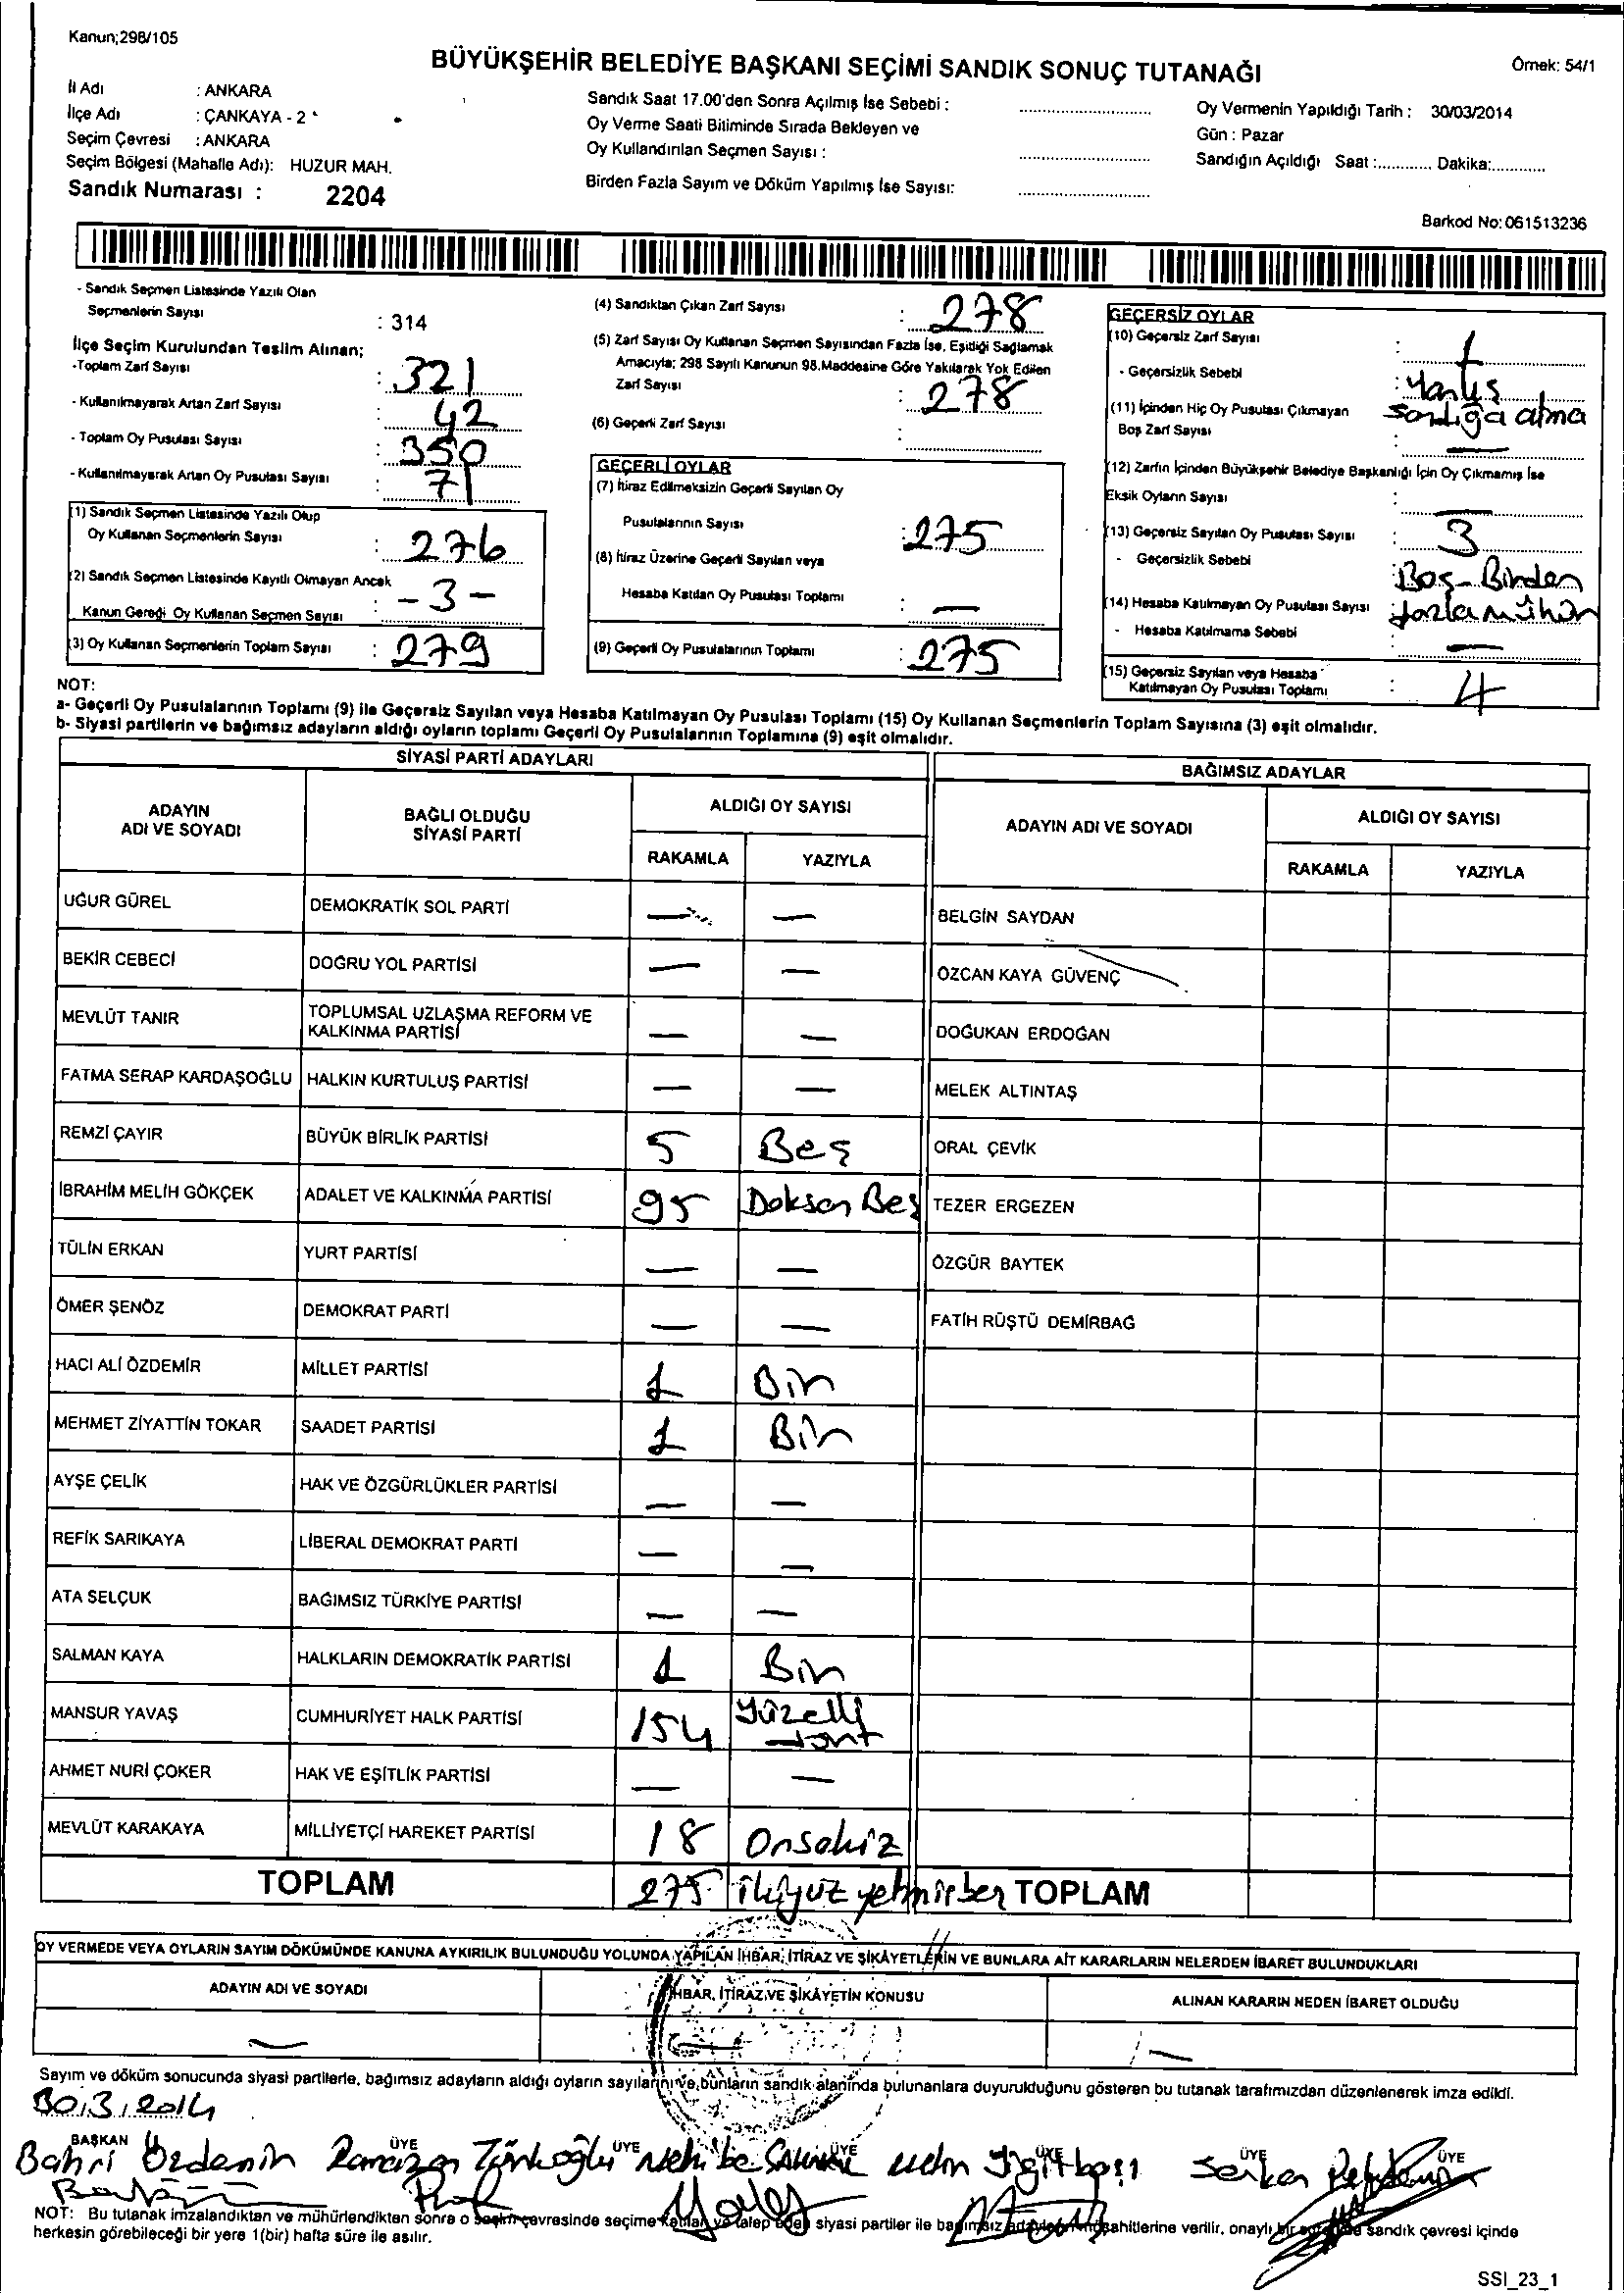 Kanun;298/105
BÜYÜKŞEHİR BELEDİYE BAŞKANI SEÇİMİ SANDIK SONUÇ TUTANAĞI
Örnek: 54/1
İl Adı : ANKARA
İlçe Adı : ÇANKAYA - 2
Seçim Çevresi : ANKARA
Seçim Bölgesi (Mahalle Adı): HUZUR MAH.
Sandık Numarası : 2204
Sandık Saat 17.00'den Sonra Açılmış İse Sebebi :
Oy Verme Saati Bitiminde Sırada Bekleyen ve
Oy Kullandırılan Seçmen Sayısı :
Birden Fazla Sayım ve Döküm Yapılmış İse Sayısı:
Oy Vermenin Yapıldığı Tarih : 30/03/2014
Gün : Pazar
Sandığın Açıldığı Saat :............ Dakika:............
Barkod No: 061513236
- Sandık Seçmen Listesinde Yazılı Olan
Seçmenlerin Sayısı : 314
İlçe Seçim Kurulundan Teslim Alınan;
-Toplam Zarf Sayısı : 321
- Kullanılmayarak Artan Zarf Sayısı : 42
- Toplam Oy Pusulası Sayısı : 350
- Kullanılmayarak Artan Oy Pusulası Sayısı : 71
(1) Sandık Seçmen Listesinde Yazılı Olup
Oy Kullanan Seçmenlerin Sayısı : 276
(2) Sandık Seçmen Listesinde Kayıtlı Olmayan Ancak
Kanun Gereği Oy Kullanan Seçmen Sayısı : - 3 -
(3) Oy Kullanan Seçmenlerin Toplam Sayısı : 279
(4) Sandıktan Çıkan Zarf Sayısı : 278
(5) Zarf Sayısı Oy Kullanan Seçmen Sayısından Fazla İse, Eşitliği Sağlamak
Amacıyla; 298 Sayılı Kanunun 98.Maddesine Göre Yakılarak Yok Edilen
Zarf Sayısı : 278
(6) Geçerli Zarf Sayısı :
GEÇERLİ OYLAR
(7) İtiraz Edilmeksizin Geçerli Sayılan Oy
Pusulalarının Sayısı : 275
(8) İtiraz Üzerine Geçerli Sayılan veya
Hesaba Katılan Oy Pusulası Toplamı : —
(9) Geçerli Oy Pusulalarının Toplamı : 275
GEÇERSİZ OYLAR
(10) Geçersiz Zarf Sayısı : 1
- Geçersizlik Sebebi : Yanlış
sandığa atma
(11) İçinden Hiç Oy Pusulası Çıkmayan
Boş Zarf Sayısı : —
(12) Zarfın İçinden Büyükşehir Belediye Başkanlığı İçin Oy Çıkmamış İse
Eksik Oyların Sayısı : —
(13) Geçersiz Sayılan Oy Pusulası Sayısı : 3
- Geçersizlik Sebebi : Boş - Birden
fazla mühür
(14) Hesaba Katılmayan Oy Pusulası Sayısı :
- Hesaba Katılmama Sebebi : —
(15) Geçersiz Sayılan veya Hesaba
Katılmayan Oy Pusulası Toplamı : 4
NOT:
a- Geçerli Oy Pusulalarının Toplamı (9) ile Geçersiz Sayılan veya Hesaba Katılmayan Oy Pusulası Toplamı (15) Oy Kullanan Seçmenlerin Toplam Sayısına (3) eşit olmalıdır.
b- Siyasi partilerin ve bağımsız adayların aldığı oyların toplamı Geçerli Oy Pusulalarının Toplamına (9) eşit olmalıdır.
SİYASİ PARTİ ADAYLARI
BAĞIMSIZ ADAYLAR
ADAYIN ADI VE SOYADI
BAĞLI OLDUĞU SİYASİ PARTİ
ALDIĞI OY SAYISI
RAKAMLA YAZIYLA
ADAYIN ADI VE SOYADI
ALDIĞI OY SAYISI
RAKAMLA YAZIYLA
UĞUR GÜREL DEMOKRATİK SOL PARTİ — — BELGİN SAYDAN
BEKİR CEBECİ DOĞRU YOL PARTİSİ — — ÖZCAN KAYA GÜVENÇ
MEVLÜT TANIR TOPLUMSAL UZLAŞMA REFORM VE KALKINMA PARTİSİ — — DOĞUKAN ERDOĞAN
FATMA SERAP KARDAŞOĞLU HALKIN KURTULUŞ PARTİSİ — — MELEK ALTINTAŞ
REMZİ ÇAYIR BÜYÜK BİRLİK PARTİSİ 5 Beş ORAL ÇEVİK
İBRAHİM MELİH GÖKÇEK ADALET VE KALKINMA PARTİSİ 95 Doksan Beş TEZER ERGEZEN
TÜLİN ERKAN YURT PARTİSİ — — ÖZGÜR BAYTEK
ÖMER ŞENÖZ DEMOKRAT PARTİ — — FATİH RÜŞTÜ DEMİRBAĞ
HACI ALİ ÖZDEMİR MİLLET PARTİSİ 1 Bir
MEHMET ZİYATTİN TOKAR SAADET PARTİSİ 1 Bir
AYŞE ÇELİK HAK VE ÖZGÜRLÜKLER PARTİSİ — —
REFİK SARIKAYA LİBERAL DEMOKRAT PARTİ — —
ATA SELÇUK BAĞIMSIZ TÜRKİYE PARTİSİ — —
SALMAN KAYA HALKLARIN DEMOKRATİK PARTİSİ 1 Bir
MANSUR YAVAŞ CUMHURİYET HALK PARTİSİ 154 Yüzelli dört
AHMET NURİ ÇOKER HAK VE EŞİTLİK PARTİSİ — —
MEVLÜT KARAKAYA MİLLİYETÇİ HAREKET PARTİSİ 18 Onsekiz
TOPLAM 275 ikiyüz yetmişbeş TOPLAM
OY VERMEDE VEYA OYLARIN SAYIM DÖKÜMÜNDE KANUNA AYKIRILIK BULUNDUĞU YOLUNDA YAPILAN İHBAR, İTİRAZ VE ŞİKÂYETLERİN VE BUNLARA AİT KARARLARIN NELERDEN İBARET BULUNDUKLARI
ADAYIN ADI VE SOYADI
İHBAR, İTİRAZ VE ŞİKÂYETİN KONUSU
ALINAN KARARIN NEDEN İBARET OLDUĞU
— — —
Sayım ve döküm sonucunda siyasi partilerle, bağımsız adayların aldığı oyların sayılarını ve bunların sandık alanında bulunanlara duyurulduğunu gösteren bu tutanak tarafımızdan düzenlenerek imza edildi.
30.3.2014
BAŞKAN ÜYE ÜYE ÜYE ÜYE ÜYE ÜYE
Bahri Özdemir Ramazan Türkoğlu Yiğitbaşı Serkan
NOT: Bu tutanak imzalandıktan ve mühürlendikten sonra o seçim çevresinde seçime katılan ve talep eden siyasi partiler ile bağımsız adayların müşahitlerine verilir, onaylı bir sureti de sandık çevresi içinde
herkesin görebileceği bir yere 1(bir) hafta süre ile asılır.
SSI_23_1